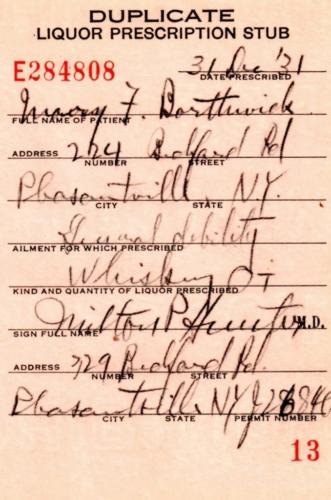 DUPLICATE
LIQUOR PRESCRIPTION STUB
E284808
31 Dec '31
DATE PRESCRIBED
F. Borthwick
FULL NAME OF PATIENT
ADDRESS 224 Bedford Rd
NUMBER STREET
Pleasantville N.Y.
CITY STATE
General debility
AILMENT FOR WHICH PRESCRIBED
Whiskey
KIND AND QUANTITY OF LIQUOR PRESCRIBED
Milton P. M.D.
SIGN FULL NAME
ADDRESS 329 Bedford Rd.
NUMBER STREET
Pleasantville NY
CITY STATE PERMIT NUMBER
13